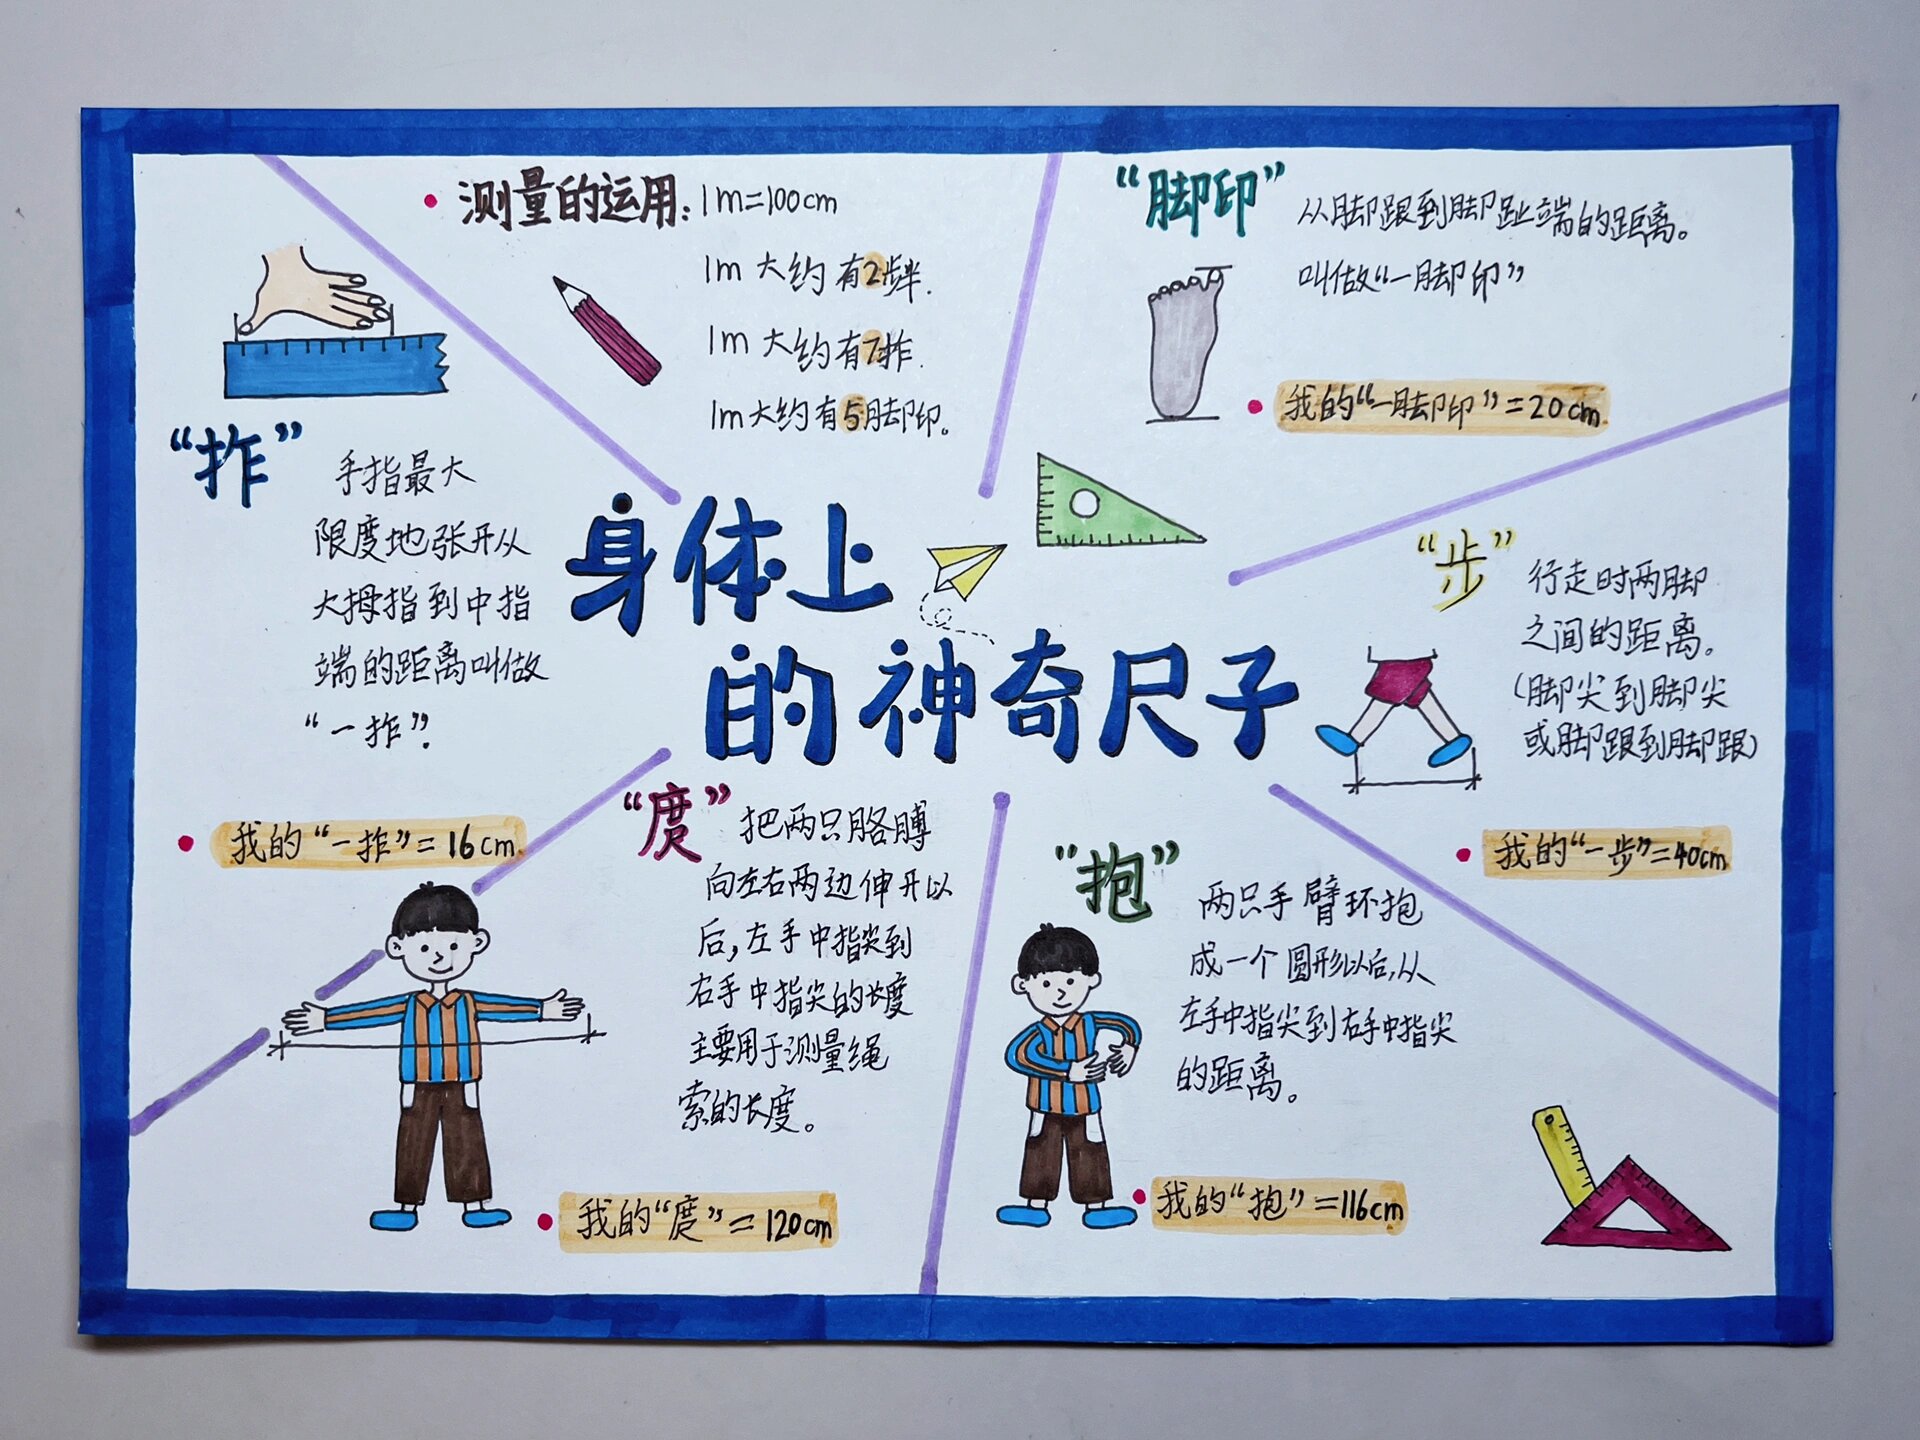 身体上
的神奇尺子
测量的运用：1m=100cm
1m大约有2步半.
1m大约有7拃.
1m大约有5脚印。
“脚印”
从脚跟到脚趾端的距离。
叫做“一脚印”
我的“一脚印”=20cm
“拃”
手指最大
限度地张开从
大拇指到中指
端的距离叫做
“一拃”.
我的“一拃”=16cm
“步”
行走时两脚
之间的距离。
(脚尖到脚尖
或脚跟到脚跟)
我的“一步”=40cm
“庹”
把两只胳膊
向左右两边伸开以
后,左手中指尖到
右手中指尖的长度
主要用于测量绳
索的长度。
我的“庹”=120cm
“抱”
两只手臂环抱
成一个圆形以后,从
左手中指尖到右手中指尖
的距离。
我的“抱”=116cm